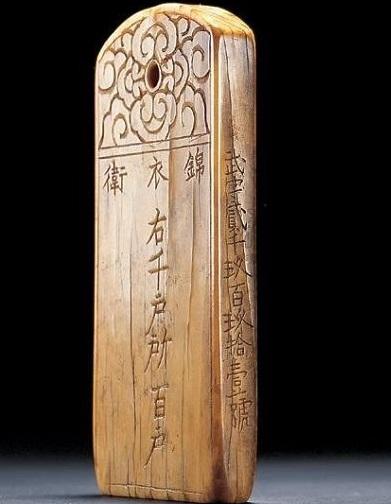 錦衣衛
右千户所百户
武字貳千玖百玖拾壹號